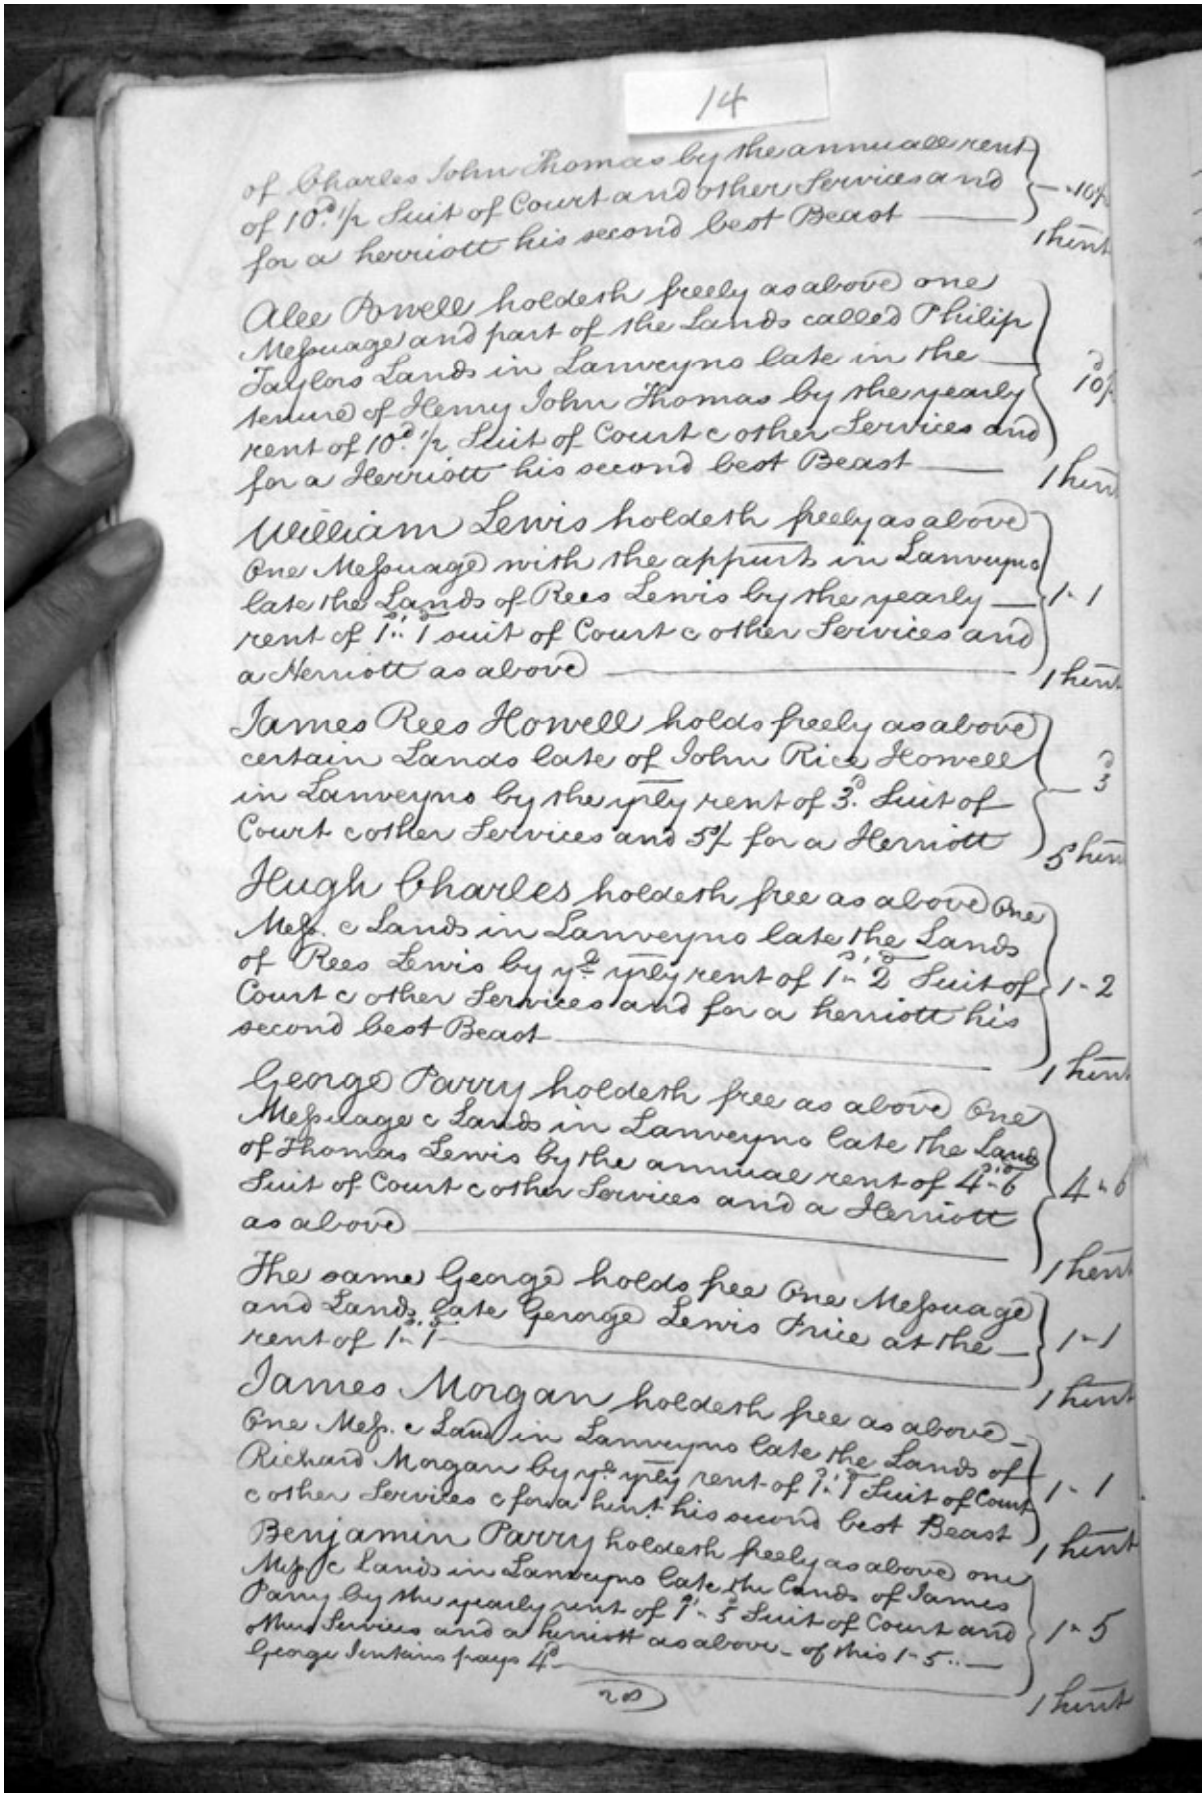 14
of Charles John Thomas by the annuall rent
of 10.d 1/2 Suit of Court and other Services and - 10 1/2
for a herriott his second best Beast
1 herit
Alee Powell holdeth freely as above one
Meſsuage and part of the Lands called Philip
Taylors Lands in Lanveyno late in the
tenure of Henry John Thomas by the yearly
rent of 10.d 1/2 Suit of Court c other Services and
for a Herriott his second best Beast
d
10 1/2
1 herit
William Lewis holdeth freely as above
One Meſsuage with the appurts in Lanveyno
late the Lands of Rees Lewis by the yearly — 1 - 1
rent of 1s.. 1d suit of Court c other Services and
a Herriott as above
1 herit
James Rees Howell holds freely as above
certain Lands late of John Rice Howell
in Lanveyno by the yrly rent of 3.d Suit of — 3d
Court c other Services and 5/ for a Herriott
5 herit
Hugh Charles holdeth free as above One
Meſs. c Lands in Lanveyno late the Lands
of Rees Lewis by ye yrly rent of 1s.. 2d Suit of 1 - 2
Court c other Services and for a herriott his
second best Beast
1 herit
George Parry holdeth free as above One
Meſsuage c Lands in Lanveyno late the Lands
of Thomas Lewis by the annual rent of 4s.. 6d
Suit of Court c other Services and a Herriott 4 .. 6
as above
1 herit
The same George holds free One Meſsuage
and Lands late George Lewis Price at the —
rent of 1s.. 1d 1 - 1
1 herit
James Morgan holdeth free as above -
One Meſs. c Land in Lanveyno late the Lands of
Richard Morgan by ye yrly rent of 1s.. 1d Suit of Court 1 - 1
c other Services c for a herit his second best Beast
1 herit
Benjamin Parry holdeth freely as above one
Meſs c Lands in Lanveyno late the Lands of James
Parry by the yearly rent of 1s - 5d Suit of Court and 1 - 5
other Services and a herriott as above - of this 1 - 5 .. —
George Jenkins pays 4d
1 herit
28